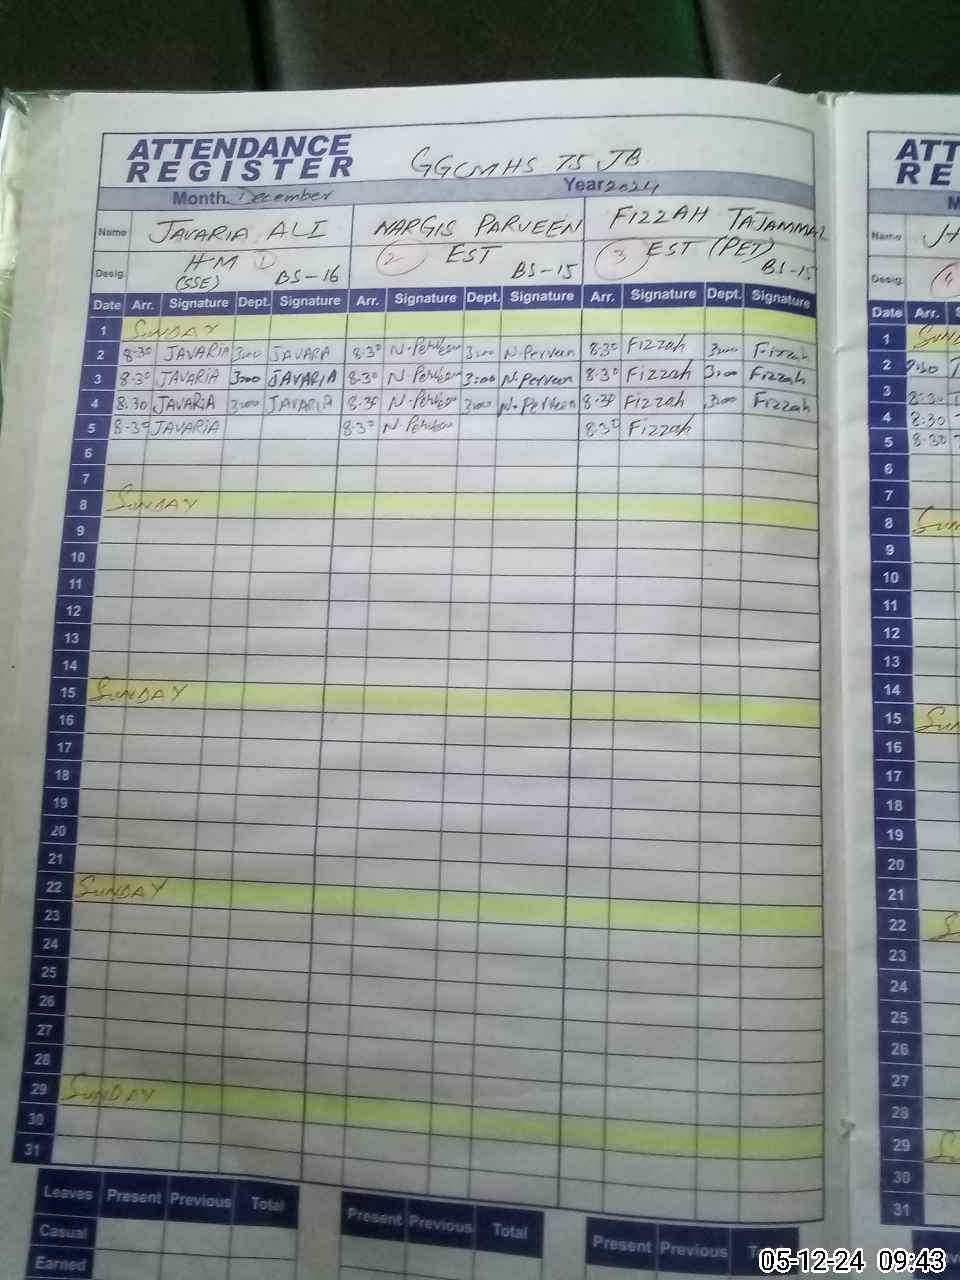 ATTENDANCE
REGISTER
GGCMHS 75 JB.
Month. December Year 2024
Name JAVARIA ALI NARGIS PARVEEN FIZZAH TAJAMMAL
Desig. HM (SSE) 1 BS-16 2 EST BS-15 3 EST (PET) BS-15
Date Arr. Signature Dept. Signature Arr. Signature Dept. Signature Arr. Signature Dept. Signature
1 SUNDAY
2 8.30 JAVARIA 3:00 JAVARA 8.30 N.Perveen 3:00 N.Perveen 8.30 Fizzah 3:00 Fizzah
3 8.30 JAVARIA 3:00 JAVARIA 8.30 N.Perveen 3:00 N.Perveen 8.30 Fizzah 3:00 Fizzah
4 8.30 JAVARIA 3:00 JAVARIA 8.30 N.Perveen 3:00 N.Perveen 8.30 Fizzah 3:00 Fizzah
5 8.30 JAVARIA 8.30 N.Perveen 8.30 Fizzah
6
7
8 SUNDAY
9
10
11
12
13
14
15 SUNDAY
16
17
18
19
20
21
22 SUNDAY
23
24
25
26
27
28
29 SUNDAY
30
31
Leaves Present Previous Total Present Previous Total Present Previous
Casual
Earned
ATT
RE
M
Name
Desig. 4
Date Arr. S
1
2
3 8:30
4 8:30
5 8.30
6
7
8
9
10
11
12
13
14
15
16
17
18
19
20
21
22
23
24
25
26
27
28
29
30
31
05-12-24 09:43